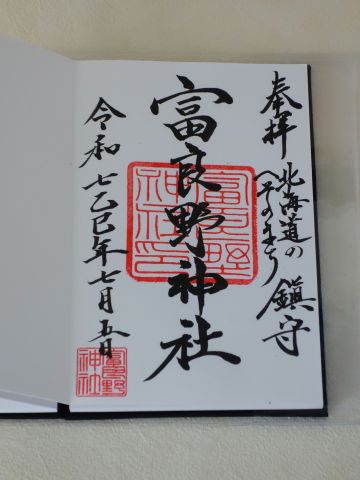 奉拝
北海道の
へそのまち
鎮守
富良野神社
令和七乙巳年七月五日
富良野
神社印
富良野
神社